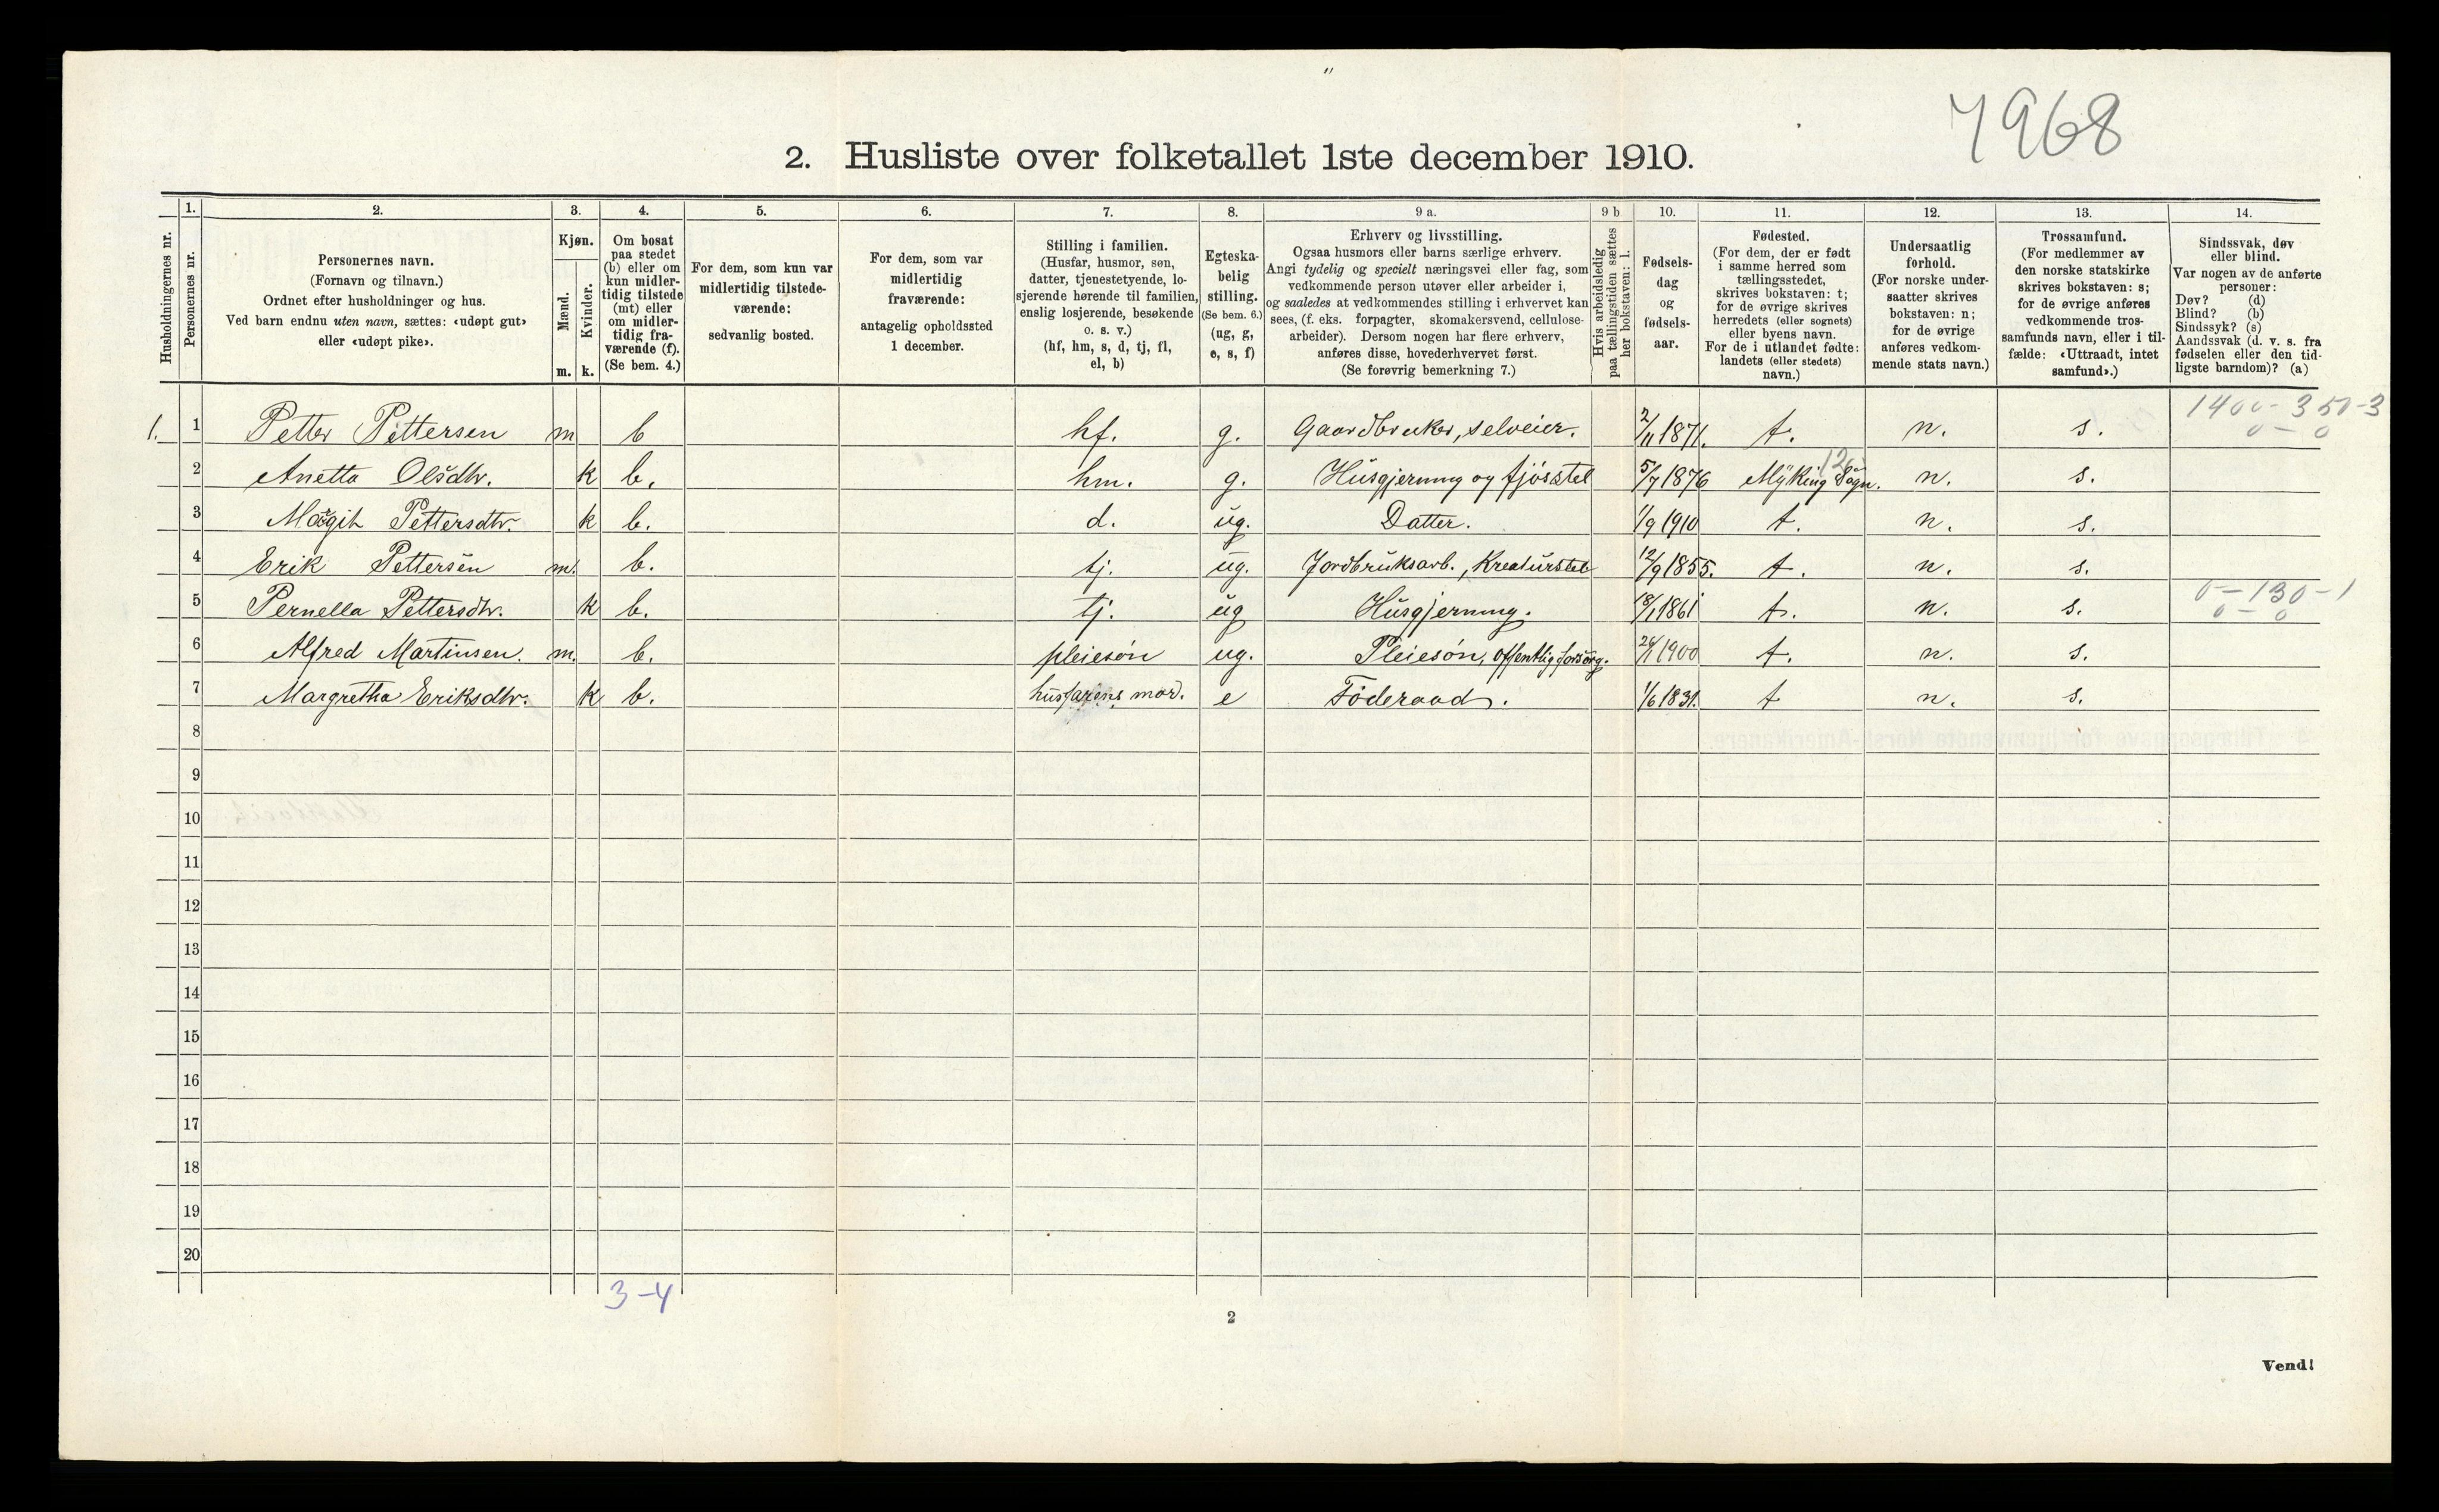 "
7968
2. Husliste over folketallet 1ste december 1910.
Husholdningernes nr.
1.
Personernes nr.
2.
Personernes navn.
(Fornavn og tilnavn.)
Ordnet efter husholdninger og hus.
Ved barn endnu uten navn, sættes: «udøpt gut»
eller «udøpt pike».
3.
Kjøn.
Mænd.
m.
Kvinder.
k.
4.
Om bosat
paa stedet
(b) eller om
kun midler-
tidig tilstede
(mt) eller
om midler-
tidig fra-
værende (f).
(Se bem. 4.)
5.
For dem, som kun var
midlertidig tilstede-
værende:
sedvanlig bosted.
6.
For dem, som var
midlertidig
fraværende:
antagelig opholdssted
1 december.
7.
Stilling i familien.
(Husfar, husmor, søn,
datter, tjenestetyende, lo-
sjerende hørende til familien,
enslig losjerende, besøkende
o. s. v.)
(hf, hm, s, d, tj, fl,
el, b)
8.
Egteska-
belig
stilling.
(Se bem. 6.)
(ug, g,
e, s, f)
9 a.
Erhverv og livsstilling.
Ogsaa husmors eller barns særlige erhverv.
Angi tydelig og specielt næringsvei eller fag, som
vedkommende person utøver eller arbeider i,
og saaledes at vedkommendes stilling i erhvervet kan
sees, (f. eks. forpagter, skomakersvend, cellulose-
arbeider). Dersom nogen har flere erhverv,
anføres disse, hovederhvervet først.
(Se forøvrig bemerkning 7.)
9 b
Hvis arbeidsledig
paa tællingstiden sættes
her bokstaven: l.
10.
Fødsels-
dag
og
fødsels-
aar.
11.
Fødested.
(For dem, der er født
i samme herred som
tællingsstedet,
skrives bokstaven: t;
for de øvrige skrives
herredets (eller sognets)
eller byens navn.
For de i utlandet fødte:
landets (eller stedets)
navn.)
12.
Undersaatlig
forhold.
(For norske under-
saatter skrives
bokstaven: n;
for de øvrige
anføres vedkom-
mende stats navn.)
13.
Trossamfund.
(For medlemmer av
den norske statskirke
skrives bokstaven: s;
for de øvrige anføres
vedkommende tros-
samfunds navn, eller i til-
fælde: «Uttraadt, intet
samfund».)
14.
Sindssvak, døv
eller blind.
Var nogen av de anførte
personer:
Døv? (d)
Blind? (b)
Sindssyk? (s)
Aandssvak (d. v. s. fra
fødselen eller den tid-
ligste barndom)? (a)
1400-350-3
0-0
1. 1 Petter Pettersen m b hf. g. Gaardbruker, selveier. 2/11 1871. t. n. s.
126
2 Anetta Olsdtr. k b. hm. g. Husgjerning og fjösstel 5/7 1876 Myking Sogn. n. s.
3 Margit Pettersdtr. k b. d. ug. Datter. 1/9 1910 t. n. s.
4 Erik Pettersen m. b. tj. ug. Jordbruksarb., Kreaturstel 12/9 1855. t. n. s.
0-130-1
0-0
5 Pernella Pettersdtr. k b. tj. ug Husgjerning. 18/1 1861 t. n. s.
6 Alfred Martinsen. m. b. pleiesön ug. Pleiesön, offentlig forsörg. 26/1 1900 t. n. s.
7 Margretha Eriksdtr. k b. husfarens mor. e Föderaad. 1/6 1831. t n. s.
8
9
10
11
12
13
14
15
16
17
18
19
20
3-4
2
Vend!